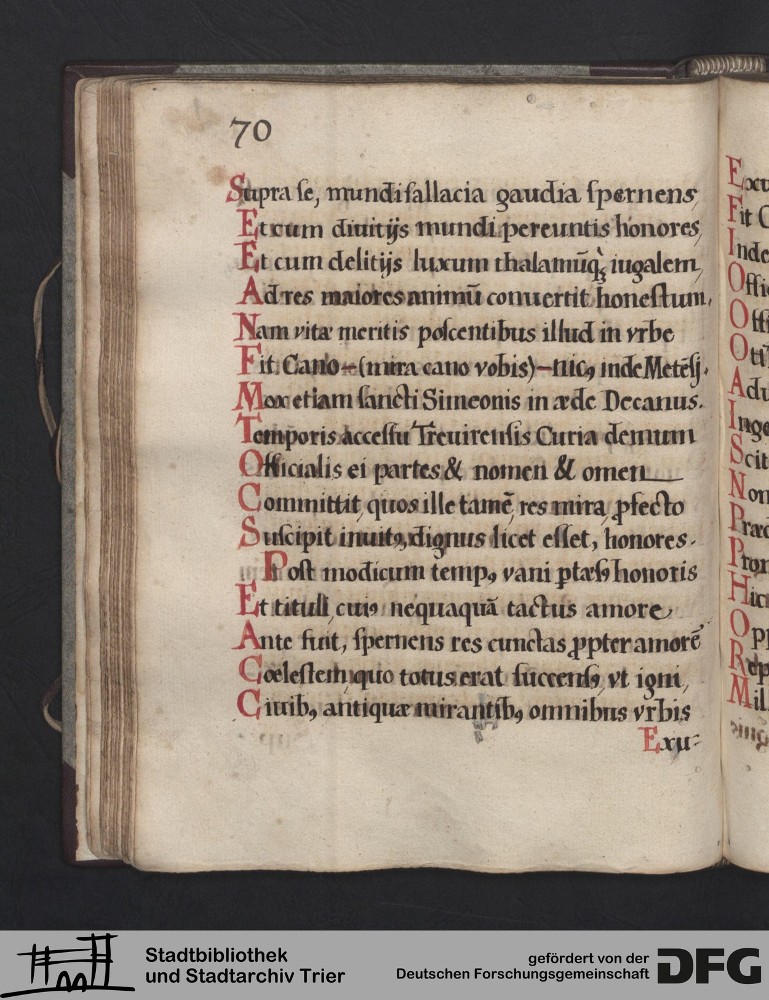 70
Supra se, mundi fallacia gaudia spernens,
Et cum diuitijs mundi pereuntis honores,
Et cum delitijs luxum thalamūq̀ȝ iugalem,
Ad res maiores animū conuertit honestum,
Nam vitæ meritis poscentibus illud in vrbe
Fit Cano-(mira cano vobis)-nicꝰ, inde Metēsꝭ.
Mox etiam sancti Simeonis in æde Decanus.
Temporis accessu Treuirensis Curia demum
Officialis ei partes & nomen & omen
Committit, quos ille tamē, res mira, ꝓfecto
Suscipit inuitꝰ, dignus licet esset, honores.
Post modicum tempꝰ, vani ptæsꝰ honoris
Et tituli, cuiꝰ nequaquā tactus amore
Ante fuit, spernens res cunctas ꝓpter amorē
Cœlestem, quo totus erat succensꝰ, vt igni,
Ciuibꝰ antiquæ mirantibꝰ omnibus vrbis
Exu-
Excu
Fit C
Inde
Offic
Offi
Oti
Adu
Inge
Scit
Non
Præc
Pron
Hic
Opp
Rep
Mil
Stadtbibliothek
und Stadtarchiv Trier
gefördert von der
Deutschen Forschungsgemeinschaft
DFG